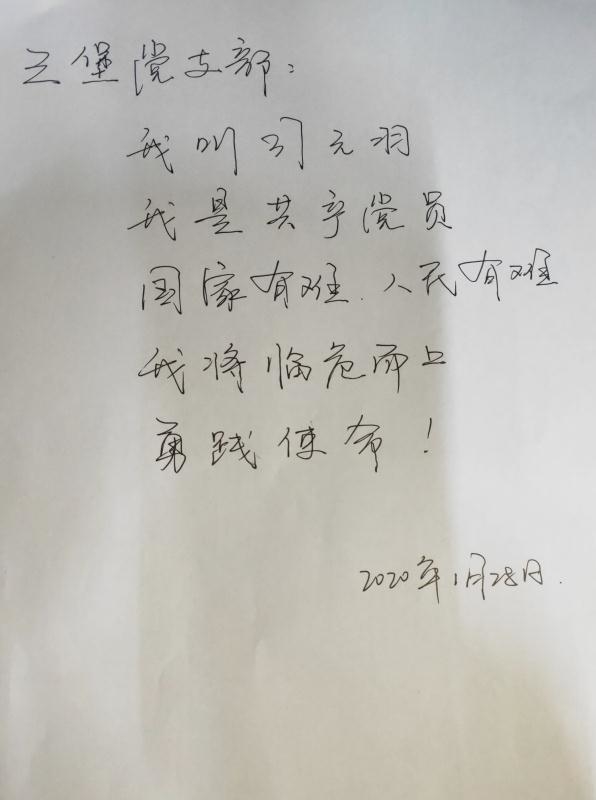 堡党支部：
我叫元羽
我是共产党员
国家有难.人民有难
我将临危而上
勇践使命！
2020年1月28日.